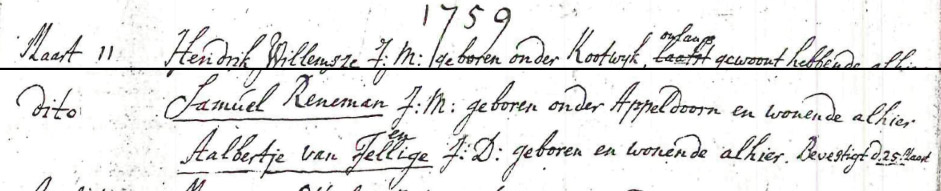 1759
Maart 11 Hendrik Willemsze J: M: geboren onder Kootwyk, onlangs laatst gewoont hebbende
dito Samuel Reneman J: M: geboren onder Appeldoorn en wonende alhier
en
Aalbertje van Tellige J: D: geboren en wonende alhier. Bevestigt d. 25 Maart